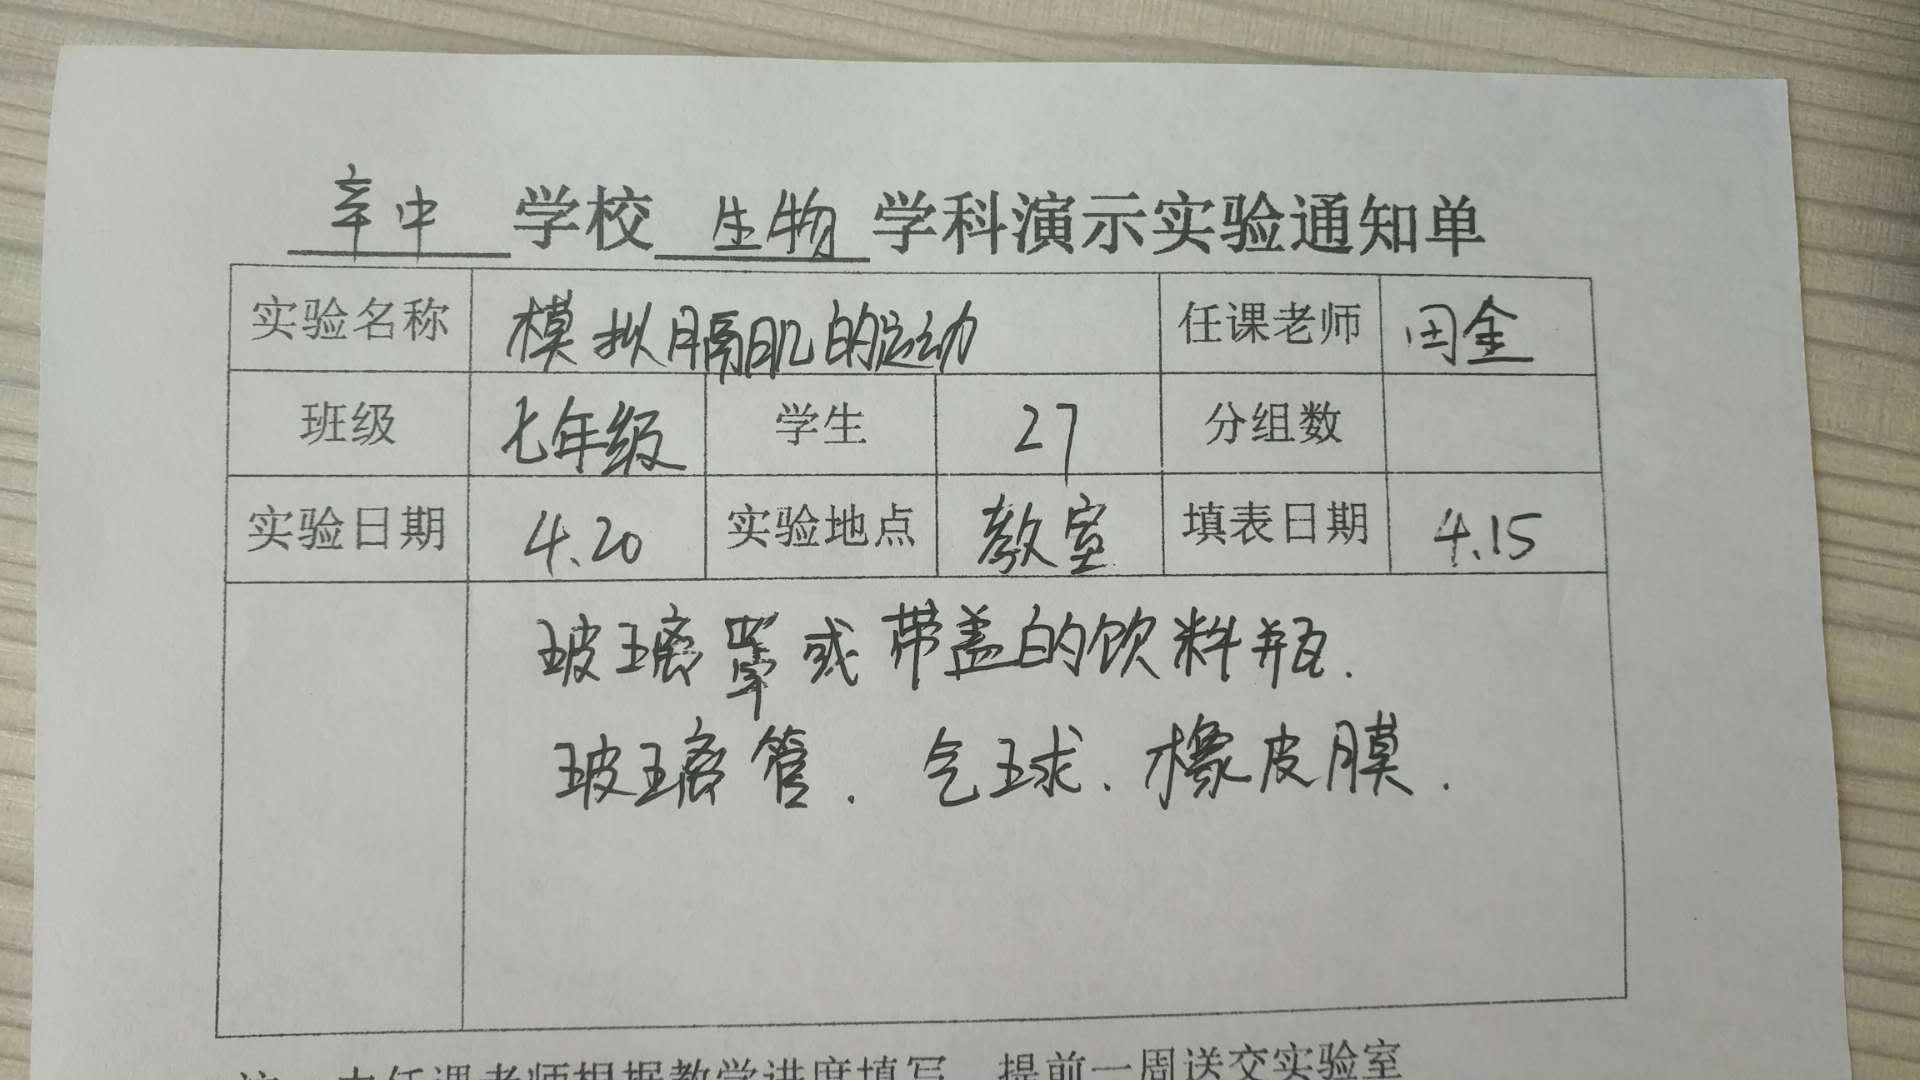 辛中 学校 生物 学科演示实验通知单
实验名称 模拟膈肌的运动 任课老师 田金
班级 七年级 学生 27 分组数
实验日期 4.20 实验地点 教室 填表日期 4.15
玻璃罩或带盖的饮料瓶.
玻璃管. 气球. 橡皮膜.
注 由任课老师根据教学进度填写 提前一周送交实验室